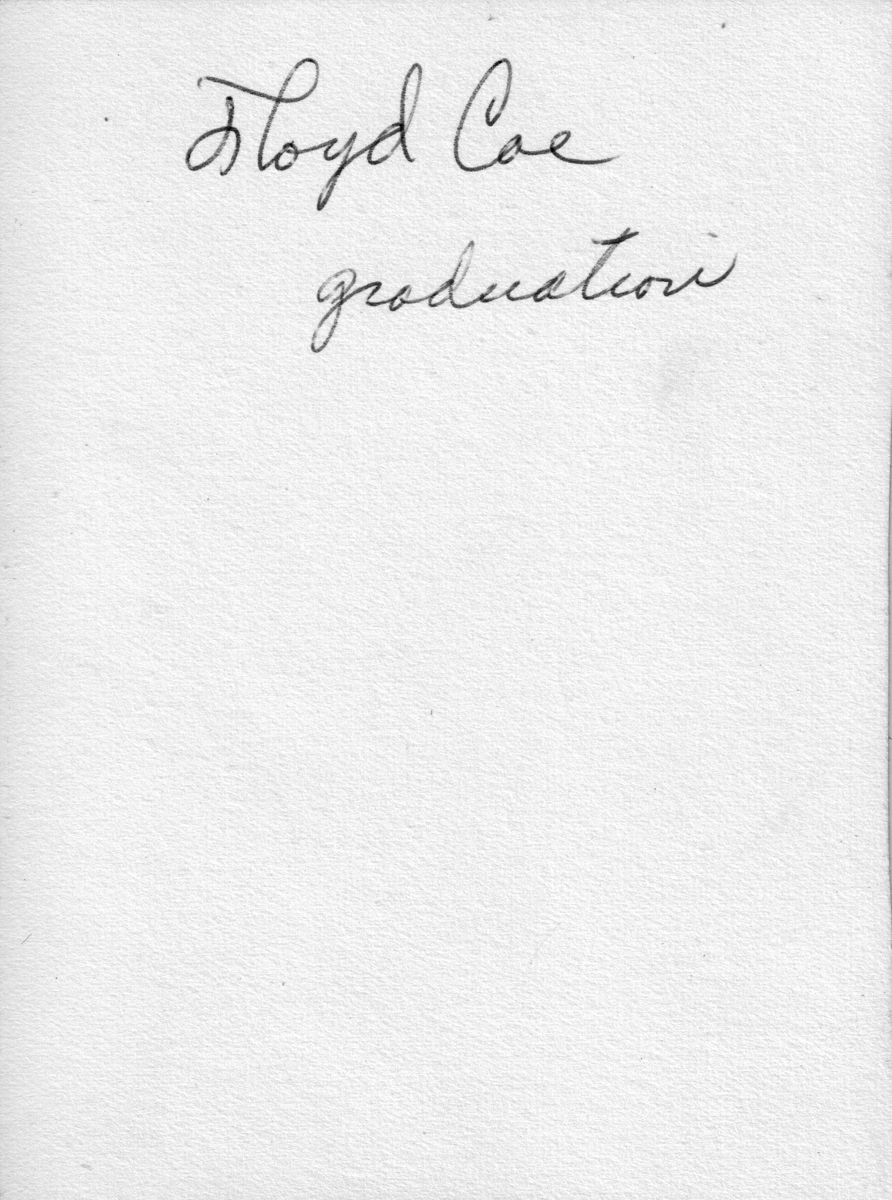 Floyd Coe
graduation